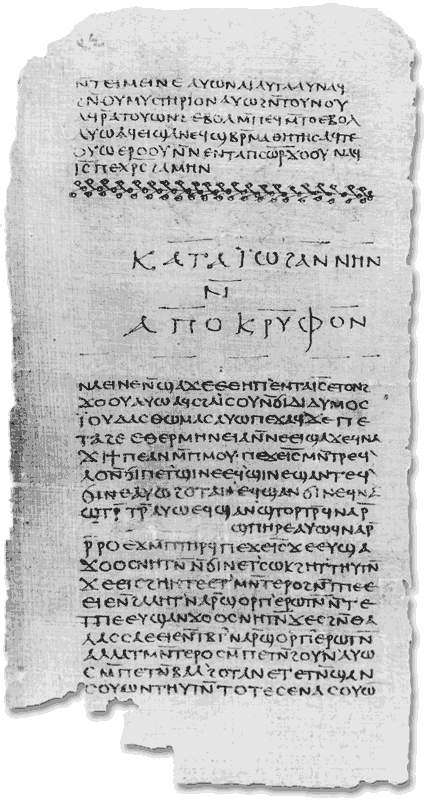 ⲛⲧⲉⲓⲙⲉⲓⲛⲉ ⲁⲩⲱ ⲛⲁⲓ ⲁⲩⲧⲁⲁⲩ ⲛⲁϥ
ϩⲛ ⲟⲩⲙⲩⲥⲧⲏⲣⲓⲟⲛ ⲁⲩⲱ ϩⲛ ⲧⲟⲩⲛⲟⲩ
ⲁϥⲣ̄ⲁⲧⲟⲩⲱⲛϩ ⲉⲃⲟⲗ ⲙ̄ⲡⲉϥⲙ̄ⲧⲟ ⲉⲃⲟⲗ
ⲁⲩⲱ ⲁϥⲉⲓ ϣⲁ ⲛⲉϥϣⲃⲣ̄ⲙⲁⲑⲏⲧⲏⲥ ⲁϥⲧⲉ
ⲟⲩⲱ ⲉⲣⲟⲟⲩ ⲛ̄ⲛⲉⲛⲧⲁⲡⲥⲱ̄ⲣ̄ ϫⲟⲟⲩ ⲛⲁϥ
ⲓ̄ⲥ̄ ⲡⲉⲭ̄ⲣ̄ⲥ̄ ϩⲁⲙⲏⲛ
ⲕⲁⲧⲁ ⲓ̈ⲱϩⲁⲛⲛⲏⲛ
ⲛ̄
ⲁⲡⲟⲕⲣⲩⲫⲟⲛ
ⲛⲁⲉⲓ ⲛⲉ ⲛ̄ϣⲁϫⲉ ⲉⲑⲏⲡ ⲉⲛⲧⲁⲓ̄ⲥ̄ ⲉⲧⲟⲛϩ
ϫⲟⲟⲩ ⲁⲩⲱ ⲁϥⲥϩⲁⲓ̈ⲥⲟⲩ ⲛ̄ϭⲓ ⲇⲓⲇⲩⲙⲟⲥ
ⲓ̈ⲟⲩⲇⲁⲥ ⲑⲱⲙⲁⲥ ⲁⲩⲱ ⲡⲉϫⲁϥ ϫⲉ ⲡⲉ
ⲧⲁϩⲉ ⲉⲑⲉⲣⲙⲏⲛⲉⲓⲁ ⲛ̄ⲛⲉⲉⲓϣⲁϫⲉ ϥⲛⲁ
ϫⲓ ϯⲡⲉ ⲁⲛ ⲙ̄ⲡⲙⲟⲩ ⲡⲉϫⲉ ⲓ̄ⲥ̄ ⲙⲛ̄ⲧⲣⲉϥ
ⲗⲟ ⲛ̄ϭⲓ ⲡⲉⲧϣⲓⲛⲉ ⲉϥϣⲓⲛⲉ ϣⲁⲛⲧⲉϥ
ϭⲓⲛⲉ ⲁⲩⲱ ϩⲟⲧⲁⲛ ⲉϥϣⲁⲛϭⲓⲛⲉ ϥⲛⲁ
ϣⲧⲣ̄ⲧⲣ̄ ⲁⲩⲱ ⲉϥϣⲁⲛϣⲧⲟⲣⲧⲣ̄ ϥⲛⲁⲣ̄
ϣⲡⲏⲣⲉ ⲁⲩⲱ ϥⲛⲁⲣ̄
ⲣ̄ⲣⲟ ⲉϫⲙ̄ ⲡⲧⲏⲣϥ ⲡⲉϫⲉ ⲓ̄ⲥ̄ ϫⲉ ⲉⲩϣⲁ
ϫⲟⲟⲥ ⲛⲏⲧⲛ̄ ⲛ̄ϭⲓ ⲛⲉⲧⲥⲱⲕ ϩⲏⲧ ⲧⲏⲩⲧⲛ̄
ϫⲉ ⲉⲓⲥϩⲏⲏⲧⲉ ⲉⲧⲙⲛ̄ⲧⲉⲣⲟ ϩⲛ̄ ⲧⲡⲉ ⲉ
ⲉⲓⲉ ⲛ̄ϩⲁⲗⲏⲧ ⲛⲁⲣ̄ϣⲟⲣⲡ ⲉⲣⲱⲧⲛ̄ ⲛ̄ⲧⲉ
ⲧⲡⲉ ⲉⲩϣⲁⲛϫⲟⲟⲥ ⲛⲏⲧⲛ̄ ϫⲉ ⲥϩⲛ̄ ⲑⲁ
ⲗⲁⲥⲥⲁ ⲉⲉⲓⲉ ⲛ̄ⲧⲃ̄ⲧ ⲛⲁⲣ̄ϣⲟⲣⲡ ⲉⲣⲱⲧⲛ̄
ⲁⲗⲗⲁ ⲧⲙⲛ̄ⲧⲉⲣⲟ ⲥⲙ̄ⲡⲉⲧⲛ̄ϩⲟⲩⲛ ⲁⲩⲱ
ⲥⲙ̄ⲡⲉⲧⲛ̄ⲃⲁⲗ ϩⲟⲧⲁⲛ ⲉⲧⲉⲧⲛ̄ϣⲁⲛ
ⲥⲟⲩⲱⲛ ⲧⲏⲩⲧⲛ̄ ⲧⲟⲧⲉ ⲥⲉⲛⲁⲥⲟⲩⲱ